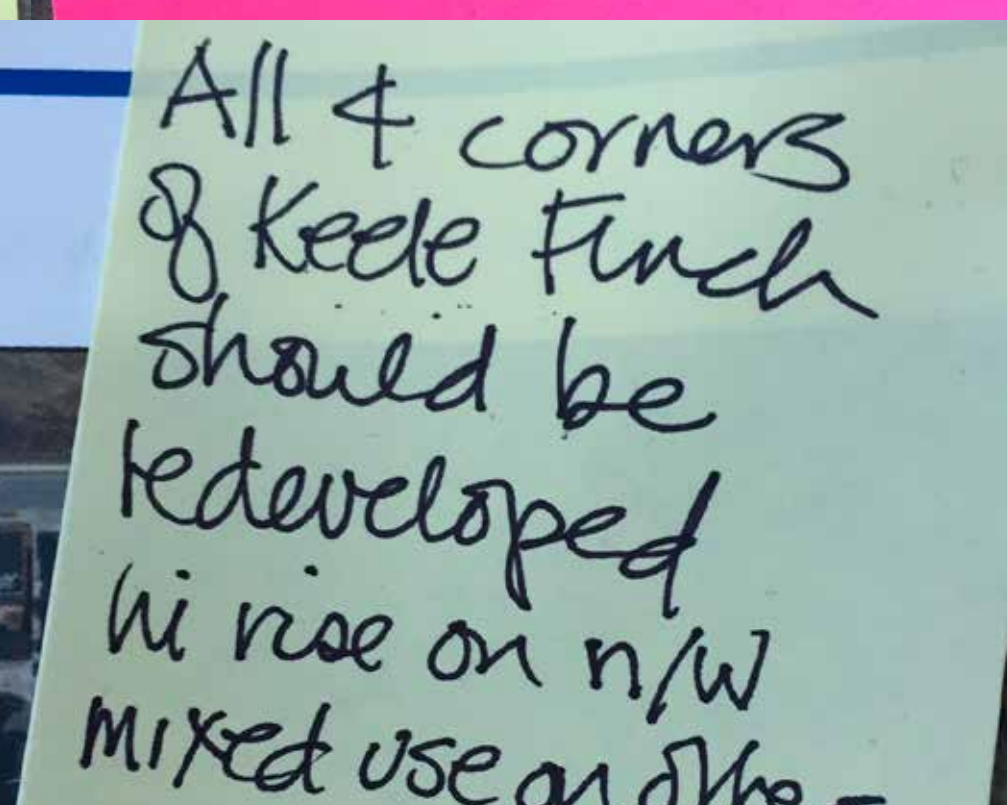 All 4 corners
of Keele Finch
should be
redeveloped
hi rise on n/w
mixed use on